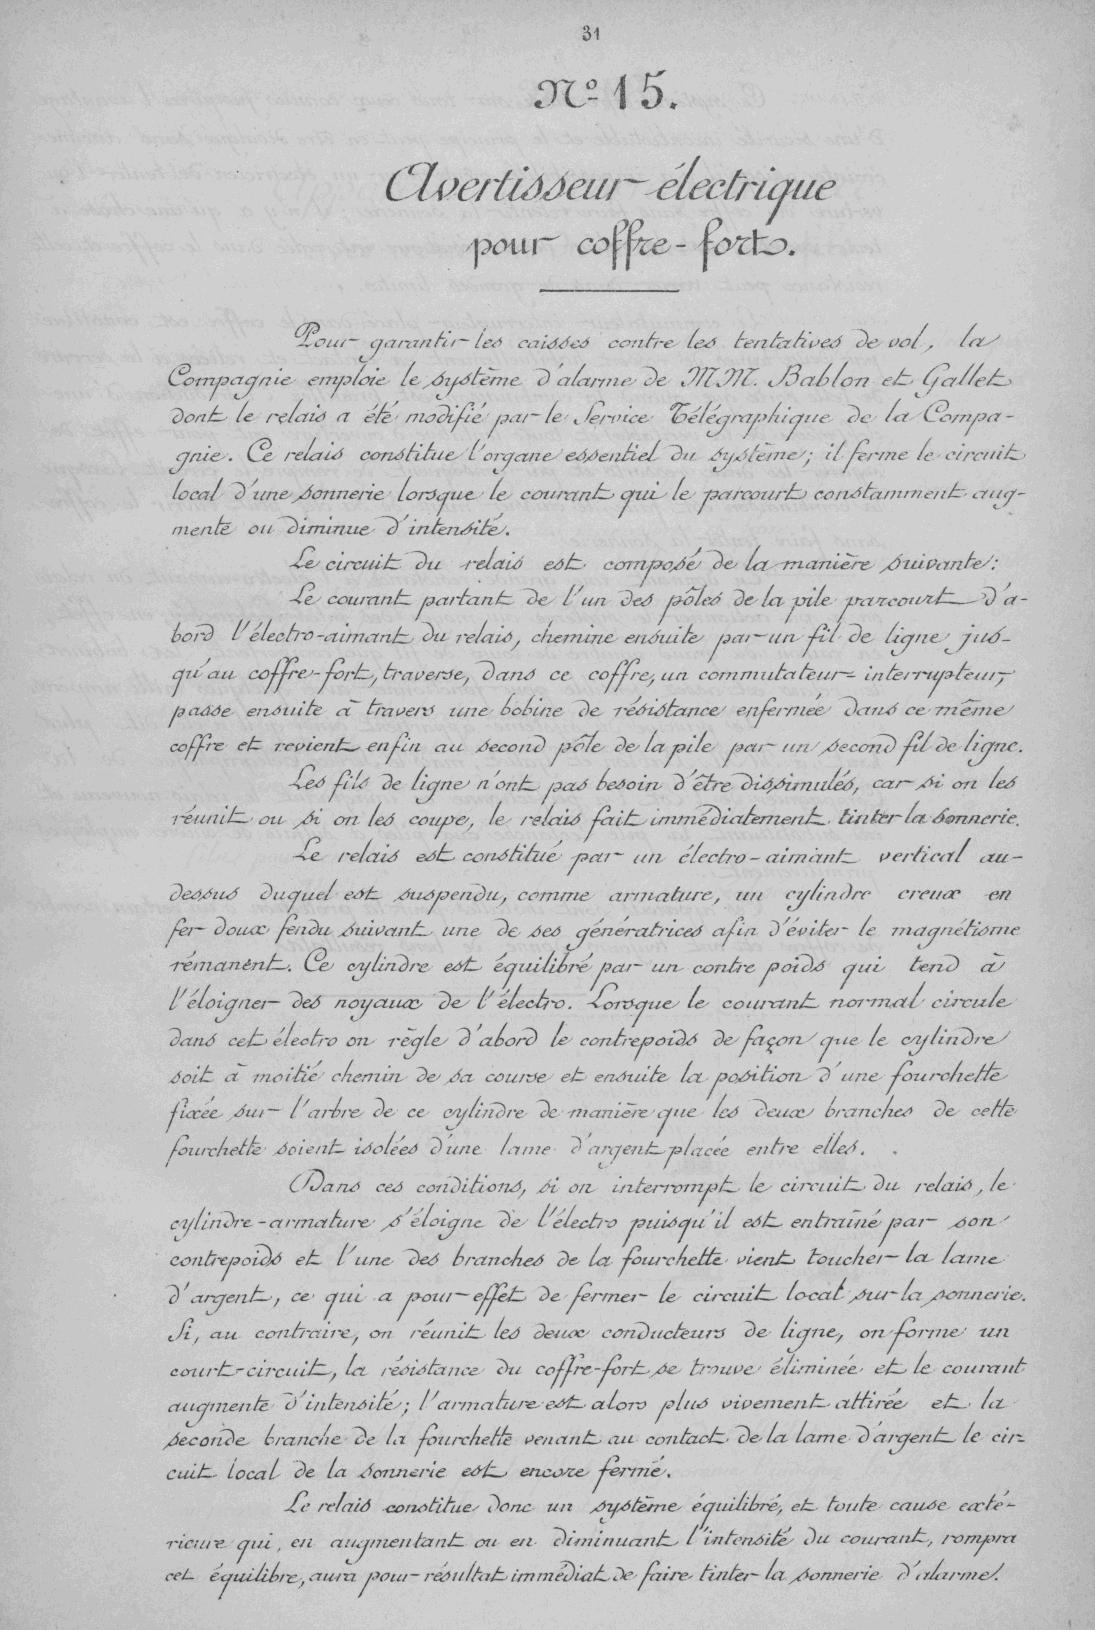 31
No 15.
Avertisseur électrique
pour coffre-forts.
Pour garantir les caisses contre les tentatives de vol, la
Compagnie emploie le système d'alarme de MM. Bablon et Gallet
dont le relais a été modifié par le Service Télégraphique de la Compa-
gnie. Ce relais constitue l'organe essentiel du système; il ferme le circuit
local d'une sonnerie lorsque le courant qui le parcourt constamment aug-
mente ou diminue d'intensité.
Le circuit du relais est composé de la manière suivante:
Le courant partant de l'un des pôles de la pile parcourt d'a-
bord l'électro-aimant du relais, chemine ensuite par un fil de ligne jus-
qu'au coffre-fort, traverse, dans ce coffre, un commutateur-interrupteur,
passe ensuite à travers une bobine de résistance enfermée dans ce même
coffre et revient enfin au second pôle de la pile par un second fil de ligne.
Les fils de ligne n'ont pas besoin d'être dissimulés, car si on les
réunit ou si on les coupe, le relais fait immédiatement tinter la sonnerie.
Le relais est constitué par un électro-aimant vertical au-
dessus duquel est suspendu, comme armature, un cylindre creux en
fer doux fendu suivant une de ses génératrices afin d'éviter le magnétisme
rémanent. Ce cylindre est équilibré par un contre poids qui tend à
l'éloigner des noyaux de l'électro. Lorsque le courant normal circule
dans cet électro on règle d'abord le contrepoids de façon que le cylindre
soit à moitié chemin de sa course et ensuite la position d'une fourchette
fixée sur l'arbre de ce cylindre de manière que les deux branches de cette
fourchette soient isolées d'une lame d'argent placée entre elles.
Dans ces conditions, si on interrompt le circuit du relais, le
cylindre-armature s'éloigne de l'électro puisqu'il est entraîné par son
contrepoids et l'une des branches de la fourchette vient toucher la lame
d'argent, ce qui a pour effet de fermer le circuit local sur la sonnerie.
Si, au contraire, on réunit les deux conducteurs de ligne, on forme un
court-circuit, la résistance du coffre-fort se trouve éliminée et le courant
augmente d'intensité; l'armature est alors plus vivement attirée et la
seconde branche de la fourchette venant au contact de la lame d'argent le cir-
cuit local de la sonnerie est encore fermé.
Le relais constitue donc un système équilibré, et toute cause exté-
rieure qui, en augmentant ou en diminuant l'intensité du courant, rompra
cet équilibre, aura pour résultat immédiat de faire tinter la sonnerie d'alarme.